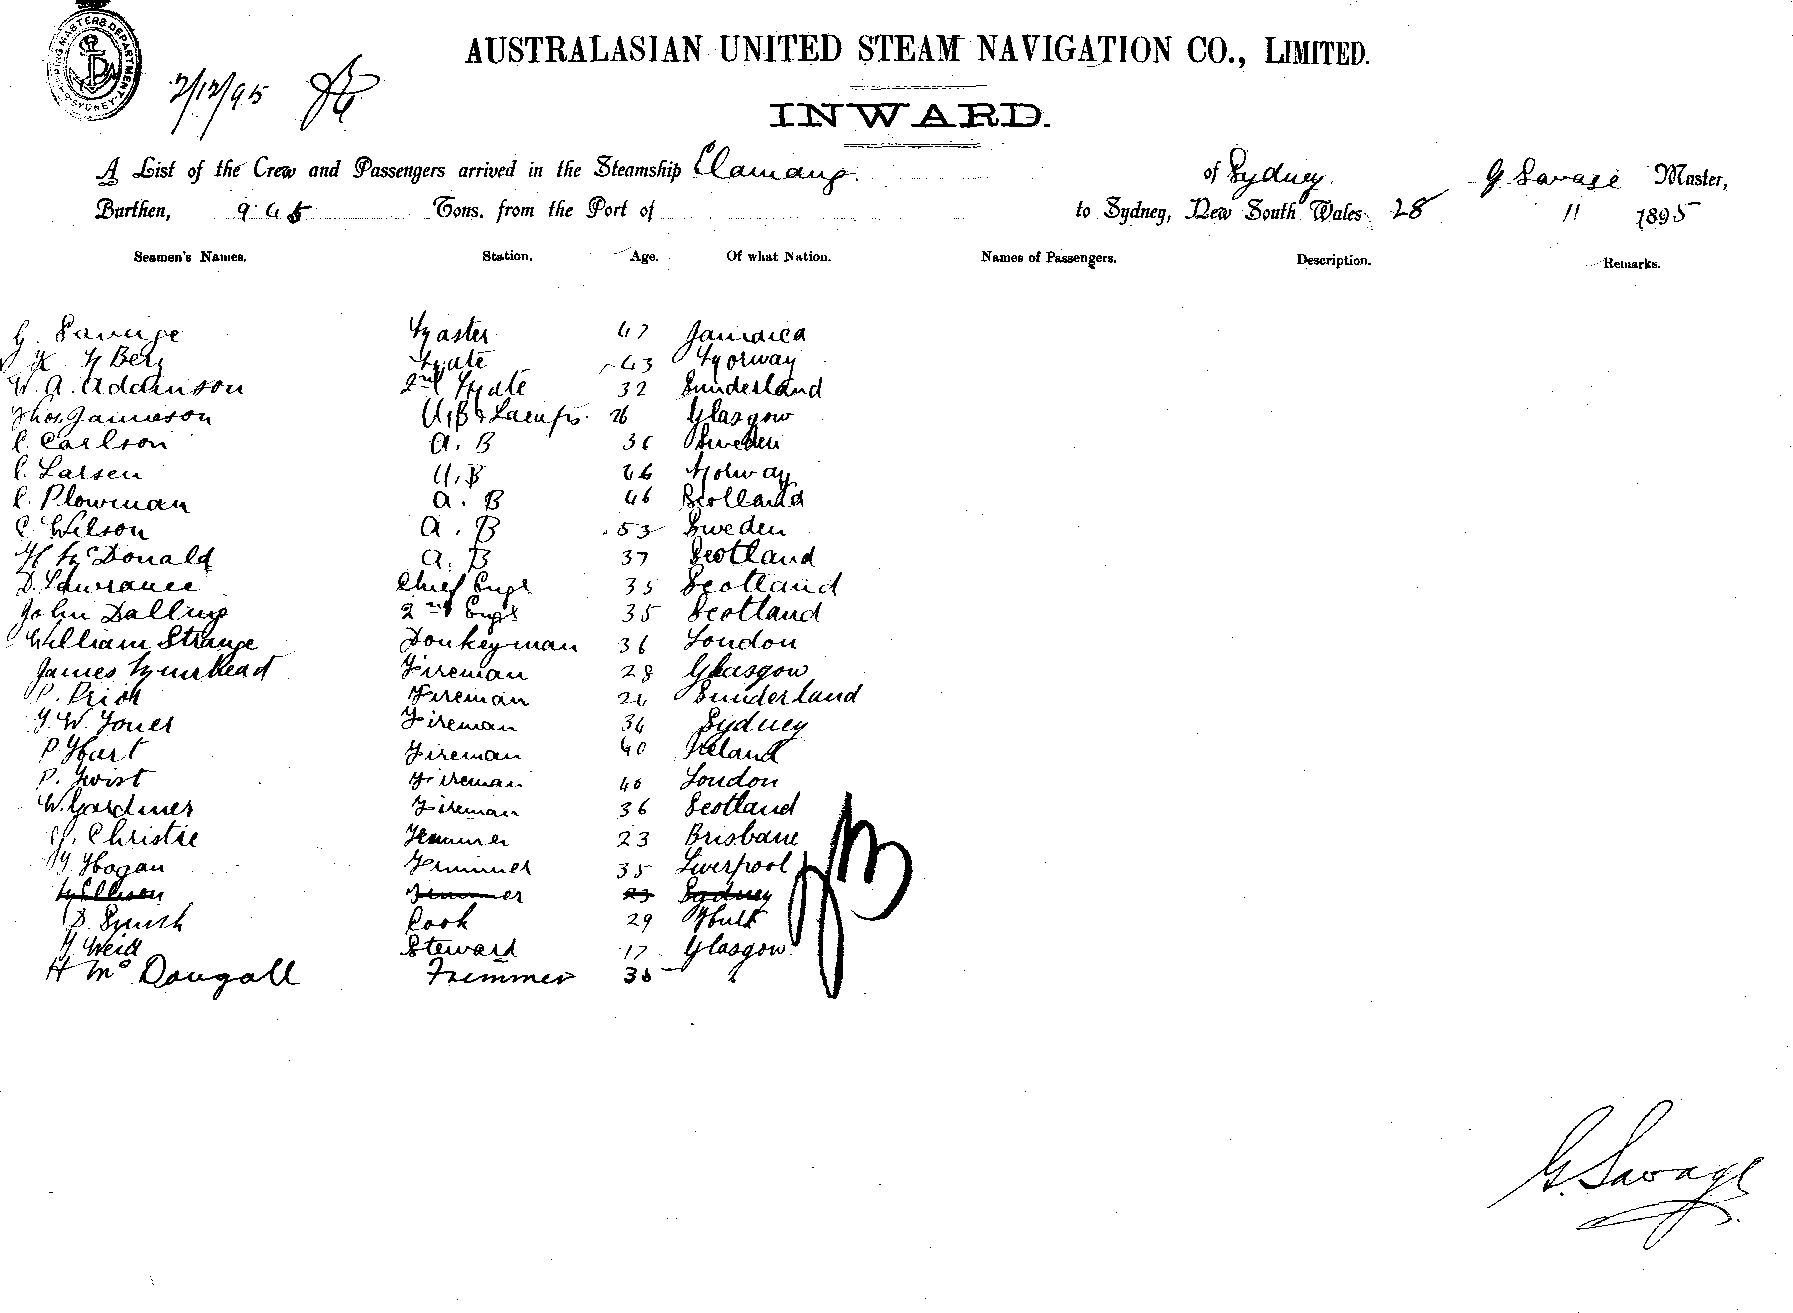 SHIPPING MASTERS DEPARTMENT SYDNEY
2/12/95
AUSTRALASIAN UNITED STEAM NAVIGATION CO., LIMITED.
INWARD.
A List of the Crew and Passengers arrived in the Steamship Elamang. of Sydney G Savage Master,
Burthen, 945 Tons. from the Port of to Sydney, New South Wales 28 11 1895
Seamen's Names. Station. Age. Of what Nation. Names of Passengers. Description. Remarks.
G. Savage Master 47 Jamaica
M Berg Mate 43 Norway
W. A. Addinson 2nd Mate 32 Sunderland
Thos Jamieson A,B & Lamps 26 Glasgow
C. Carlson A. B 36 Sweden
C. Larsen A. B Norway
C. Plowman A. B 46 Scotland
C. Wilson A. B 53 Sweden
H McDonald A. B 37 Scotland
D. Lawrance Chief Engr 35 Scotland
John Dalling 2nd Engr 35 Scotland
William Strange Donkeyman 36 London
James Muirhead Fireman 28 Glasgow
P. Fireman 24 Sunderland
J. W. Jones Fireman 34 Sydney
P Hart Fireman 40 Ireland
P. Twist Fireman 40 London
W. Gardiner Fireman 36 Scotland
Christie Trimmer 23 Brisbane
Hogan Trimmer 35 Liverpool
M Ellison Trimmer 23 Sydney
D. Cook 29 Hull
Weid Steward 17 Glasgow
H McDougall Trimmer 36 "
G. Savage